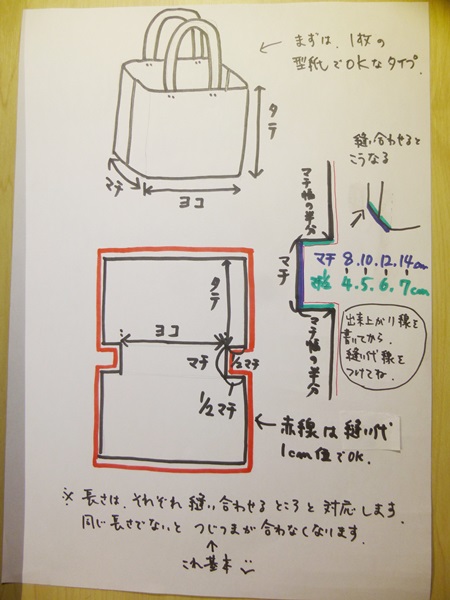 まずは、1枚の
型紙でOKなタイプ。
タテ
マチ
ヨコ
縫い合わせると
こうなる
マチ幅の半分
マチ
マチ 8.10.12.14cm
4.5.6.7cm
マチ幅の半分
出来上がり線を
書いてから、
縫い代線を
つけてね。
タテ
ヨコ
マチ
1/2マチ
1/2マチ
赤線は縫い代
1cm位でOK.
※長さは、それぞれ縫い合わせるところと対応します。
同じ長さでないとつじつまが合わなくなります。
↑
これ基本